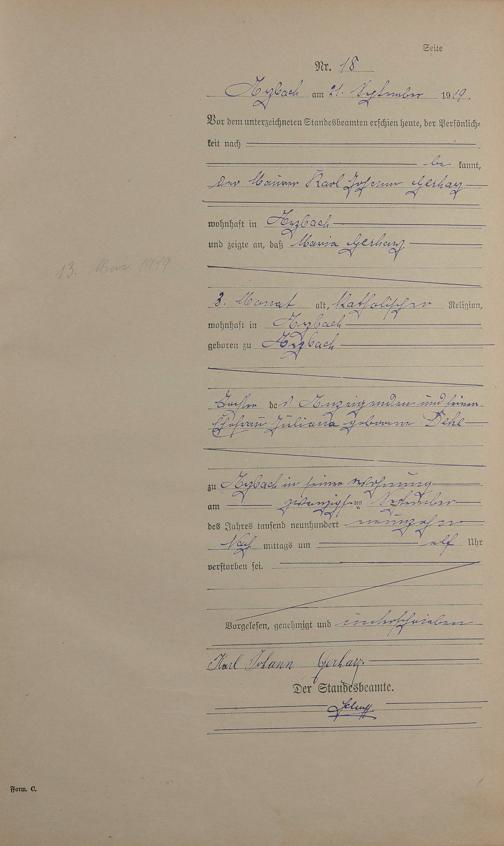 Seite
Nr. 18
Arzbach am 21. September 1919.
Vor dem unterzeichneten Standesbeamten erschien heute, der Persönlich-
keit nach
be kannt,
der Maurer Karl Johann Gerharz
wohnhaft in Arzbach
und zeigte an, daß Maria Gerharz
13. 1919
3. Monat alt, katholischer Religion,
wohnhaft in Arzbach
geboren zu Arzbach
Tochter des Anzeigenden und seiner
Ehefrau Juliana geborene Diehl
zu Arzbach in seiner Wohnung
am zwanzigsten September
des Jahres tausend neunhundert neunzehn
Nach mittags um elf Uhr
verstorben sei.
Vorgelesen, genehmigt und unterschrieben
Karl Johann Gerharz
Der Standesbeamte.
Form. C.